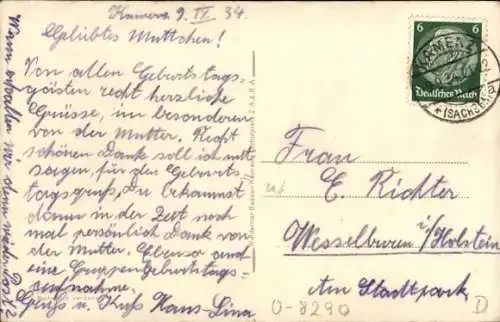 Kamenz 9. IV. 34.
Geliebtes Muttchen!
Von allen Geburtstags-
gästen recht herzliche
Grüsse, im besonderen
von der Mutter. Recht
schönen Dank soll ich mit
sagen, für den Geburts
tagsgruß, Du bekommst
dann in der Zeit noch
mal persönlich Dank von
der Mutter. Ebenso
eine Gruppen Geburtstags-
aufnahme.
Gruss u. Kuss Hans-Lina
Wann erhalten wir denn wieder Post?
6 6
Deutsches Reich
KAMENZ
(SACHSEN)
Frau
E. Richter
Wesselburen i/Holstein
Am Stadtpark
0-8290
D